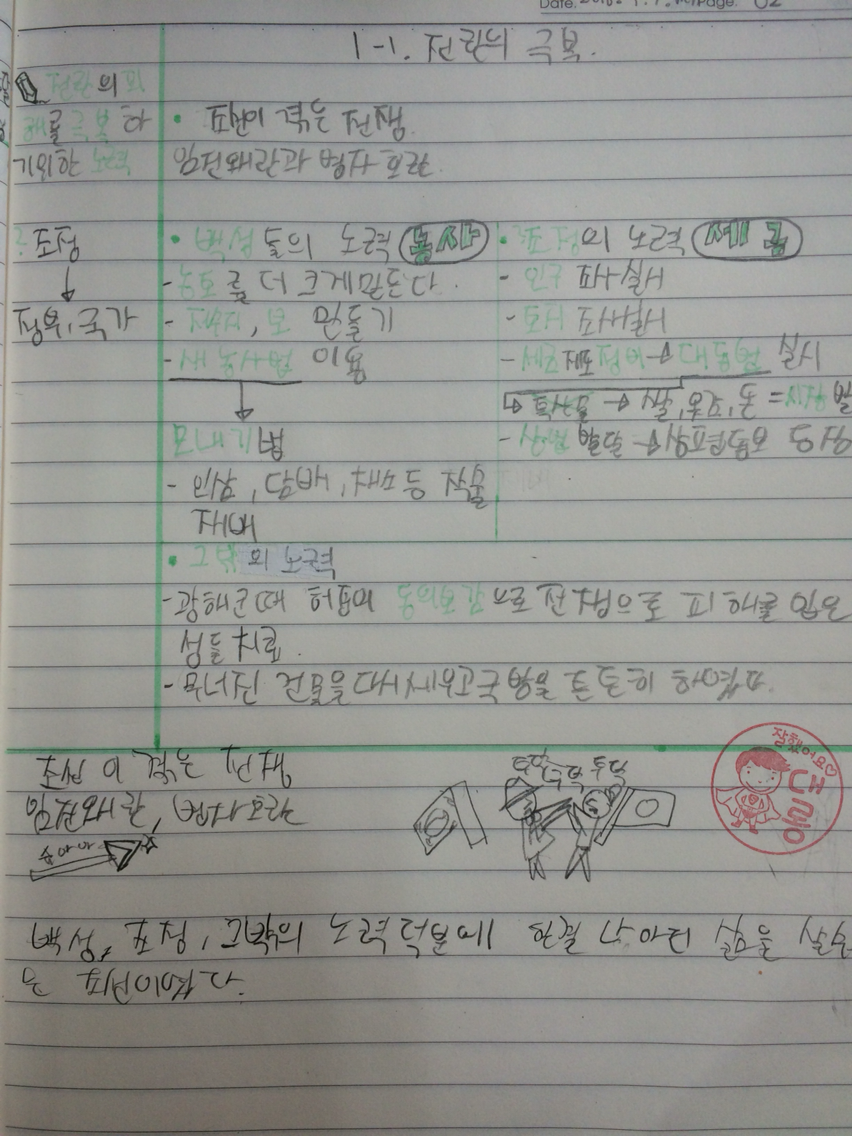 Date.
Page. 02
1-1. 전란의 극복.
전란의 피
해를 극복하
기위한 노력
• 조선이 겪은 전쟁.
임진왜란과 병자호란.
조정
↓
정부, 국가
• 백성들의 노력 농사
- 농토를 더 크게만든다.
- 저수지, 보 만들기
- 새 농사법 이용
↓
모내기법
- 인삼, 담배, 채소 등 작물
재배
• 조정의 노력 세금
- 인구 조사실시
- 토지 조사실시
- 세금제도정비→대동법 실시
↳ 특산물 → 쌀, 옷감, 돈 = 시장 발
- 상업 발달 → 상평통보 등장
• 그밖의 노력
- 광해군때 허준이 동의보감으로 전쟁으로 피해를 입은
성들 치료.
- 무너진 건물을 다시세우고국방을 튼튼히 하였다.
조선이 겪은 전쟁
임진왜란, 병자호란
잘했어요♡
대롱
백성, 조정, 그밖의 노력 덕분에 한결 나아진 삶을 살수